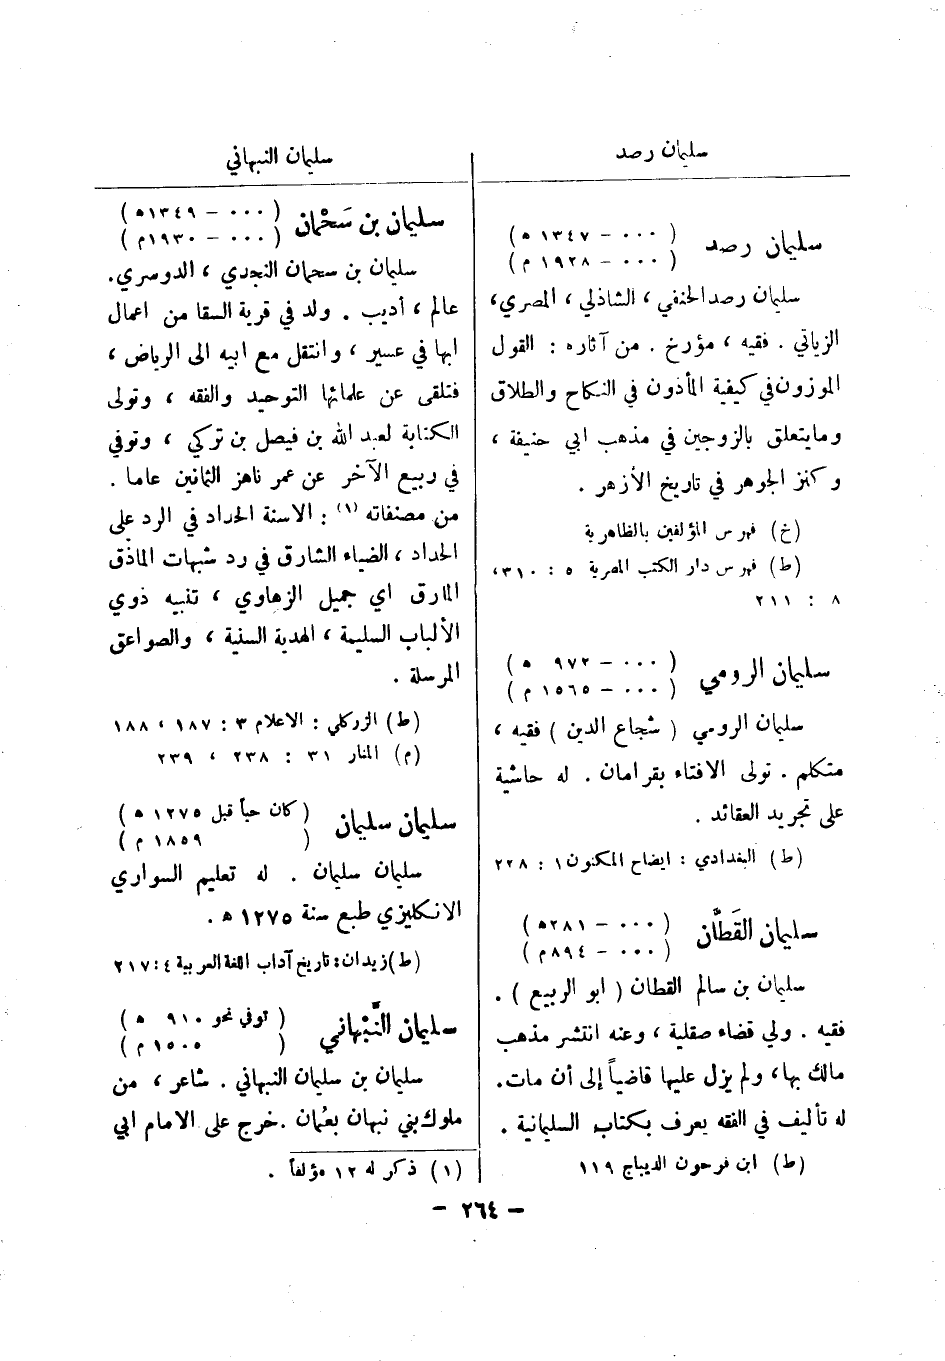 سليمان رصد
سليمان رصد
( ٠٠٠ – ١٣٤٧ ه )
( ٠٠٠ – ١٩٢٨ م )
سليمان رصد الحنفي ، الشاذلي ، المصري ،
الزياتي . فقيه ، مؤرخ . من آثاره : القول
الموزون في كيفية المأذون في النكاح والطلاق
وما يتعلق بالزوجين في مذهب ابي حنيفة ،
وكنز الجوهر في تاريخ الأزهر .
(خ) فهرس المؤلفين بالظاهرية
(ط) فهرس دار الكتب المصرية ٥ : ٣١٠ ،
٨ : ٢١١
سليمان الرومي
( ٠٠٠ – ٩٧٢ ه )
( ٠٠٠ – ١٥٦٥ م )
سليمان الرومي ( شجاع الدين ) فقيه ،
متكلم . تولى الافتاء بقرامان . له حاشية
على تجريد العقائد .
(ط) البغدادي : ايضاح المكنون ١ : ٢٢٨
سليمان القَطَّان
( ٠٠٠ – ٢٨١ه )
( ٠٠٠ – ٨٩٤م )
سليمان بن سالم القطان ( ابو الربيع ) .
فقيه . ولي قضاء صقلية ، وعنه انتشر مذهب
مالك بها ، ولم يزل عليها قاضياً إلى أن مات .
له تأليف في الفقه يعرف بكتاب السليمانية .
(ط) ابن فرحون الديباج ١١٩
سليمان النبهاني
سليمان بن سَحْمان
( ٠٠٠ – ١٣٤٩ه )
( ٠٠٠ – ١٩٣٠م )
سليمان بن سحمان النجدي ، الدوسري .
عالم ، أديب . ولد في قرية السقا من اعمال
ابها في عسير ، وانتقل مع ابيه الى الرياض ،
فتلقى عن علمائها التوحيد والفقه ، وتولى
الكتابة لعبد الله بن فيصل بن تركي ، وتوفي
في ربيع الآخر عن عمر ناهز الثمانين عاما .
من مصنفاته (١) : الاسنة الحداد في الرد على
الحداد ، الضياء الشارق في رد شبهات الماذق
المارق اي جميل الزهاوي ، تنبيه ذوي
الألباب السليمة ، الهدية السنية ، والصواعق
المرسلة .
(ط) الزركلي : الاعلام ٣ : ١٨٧ ، ١٨٨
(م) المنار ٣١ : ٢٣٨ ، ٢٣٩
سليمان سليمان
( كان حياً قبل ١٢٧٥ ه )
( ١٨٥٩ م )
سليمان سليمان . له تعليم السواري
الانكليزي طبع سنة ١٢٧٥ ه .
(ط) زيدان : تاريخ آداب اللغة العربية ٤ : ٢١٧
سليمان النَّبْهاني
( توفي نحو ٩١٠ ه )
( ١٥٠٥ م )
سليمان بن سليمان النبهاني . شاعر ، من
ملوك بني نبهان بعُمان . خرج على الامام ابي
(١) ذكر له ١٢ مؤلفاً .
– ٢٦٤ –